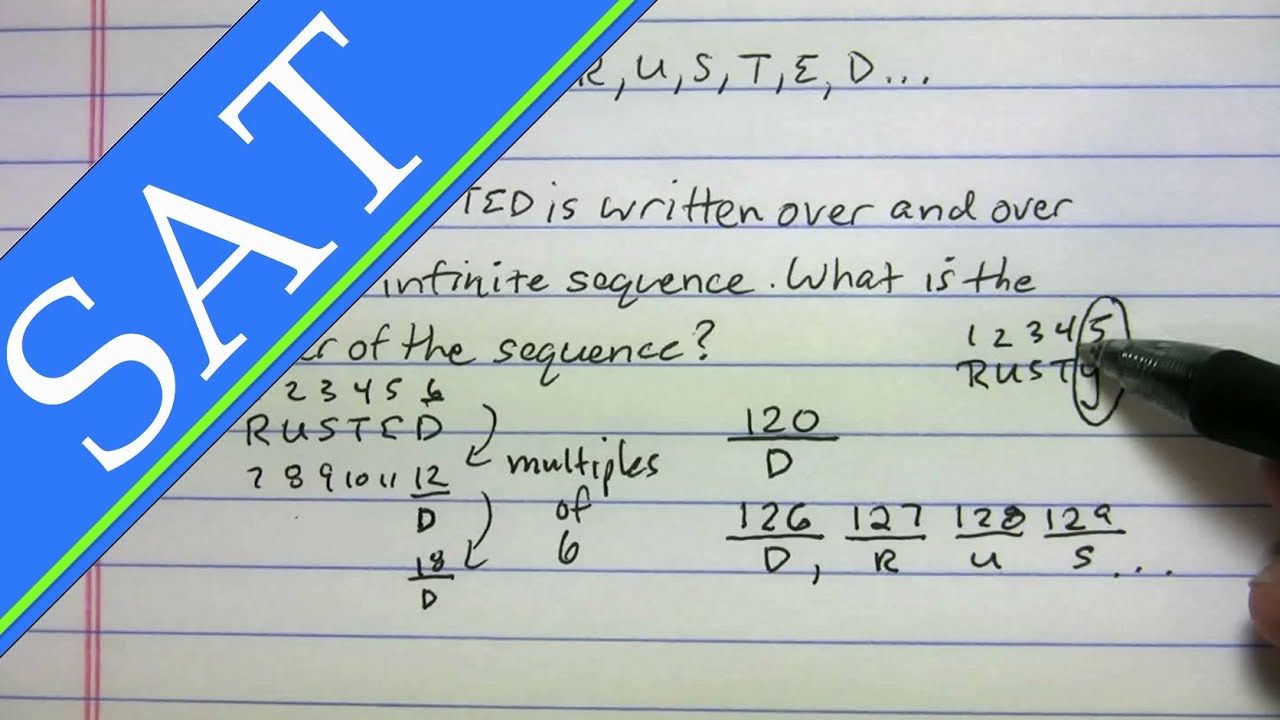 SAT
R, U, S, T, E, D...
TED is written over and over
infinite sequence. What is the
of the sequence?
2 3 4 5 6
RUSTED
7 8 9 10 11 12
D
18
D
multiples
of
6
120
D
1 2 3 4 5
RUSTY
126 127 128 129
D, R U S ...